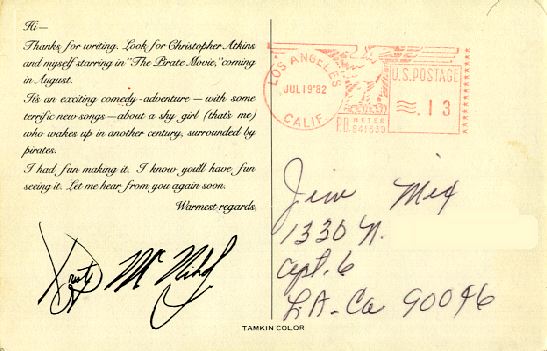 Hi—
Thanks for writing. Look for Christopher Atkins
and myself starring in "The Pirate Movie," coming
in August.
It's an exciting comedy-adventure — with some
terrific new songs — about a shy girl (that's me)
who wakes up in another century, surrounded by
pirates.
I had fun making it. I know you'll have fun
seeing it. Let me hear from you again soon.
Warmest regards,
Mc Nichol
LOS ANGELES
JUL 19 '82
CALIF
U.S. POSTAGE
.13
P.B. METER
Jim
1330 N.
apt. 6
LA-Ca 90046
TAMKIN COLOR